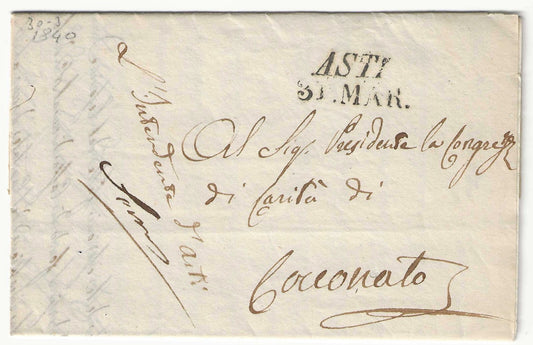 30-3
1840
ASTI
31.MAR.
Al Sig. Presidente la Congreg
di Carità di
Cocconato
L'Intendente d'Asti